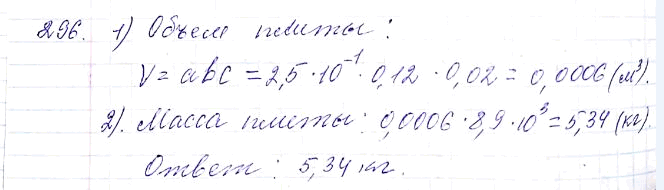 296. 1) Объем плиты:
V = abc = 2,5 · 10⁻¹ · 0,12 · 0,02 = 0,0006 (м³).
2). Масса плиты: 0,0006 · 8,9 · 10³ = 5,34 (кг).
Ответ: 5,34 кг.